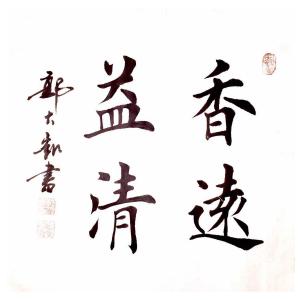 香遠
益清
郭大勳書